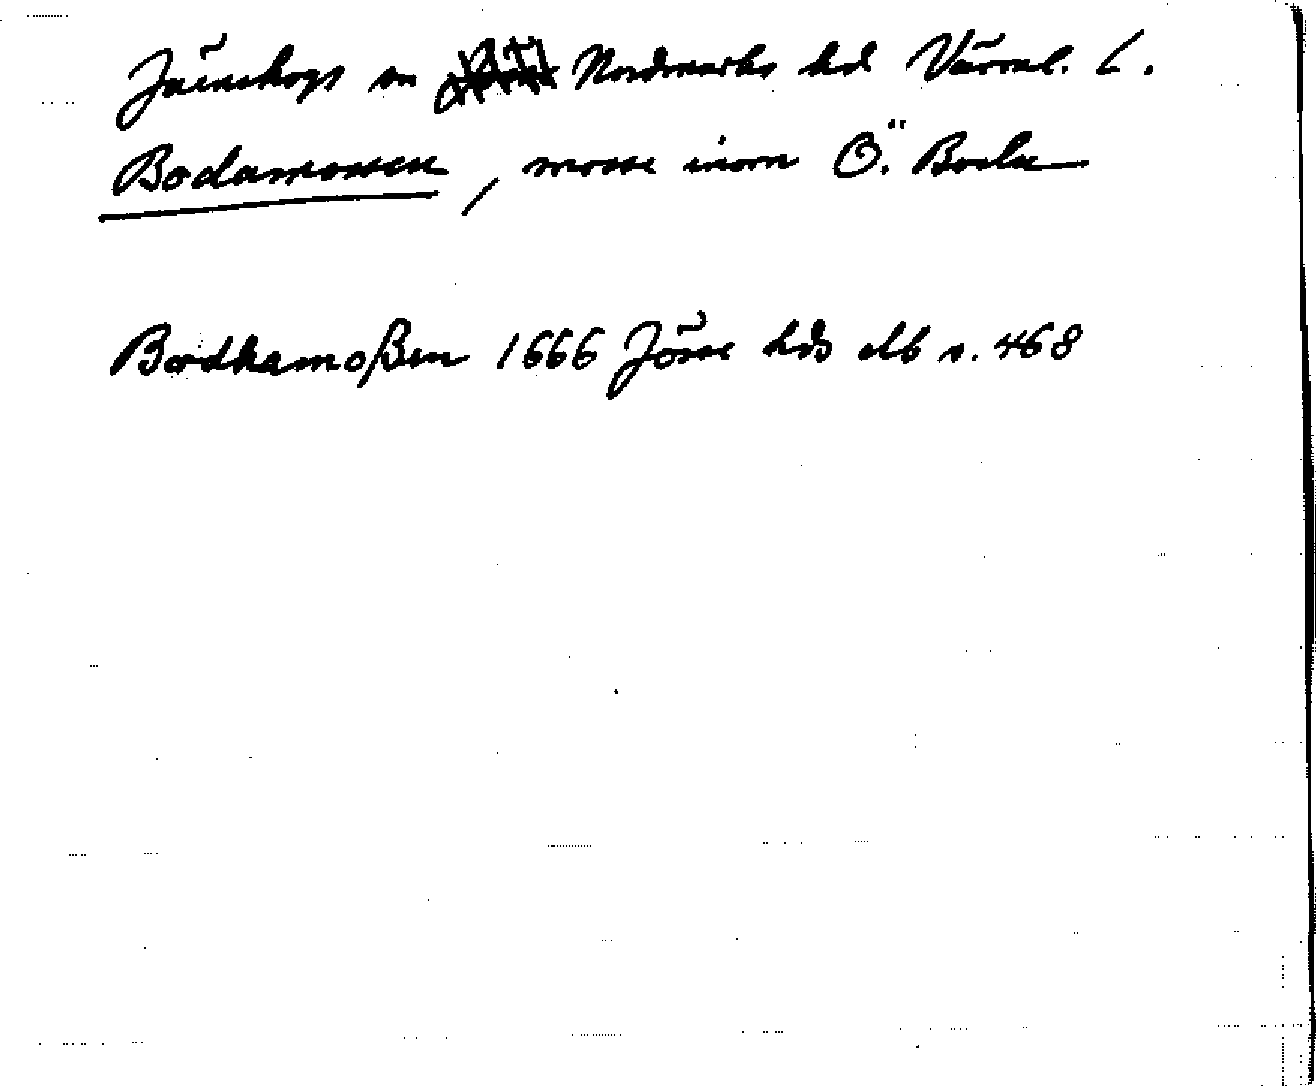 Järnskogs sn Nordmarks hd Värml. l.
Bodamossen, mosse inom Ö. Boda
BodhamoßEn 1666 Jösse hds db s. 468